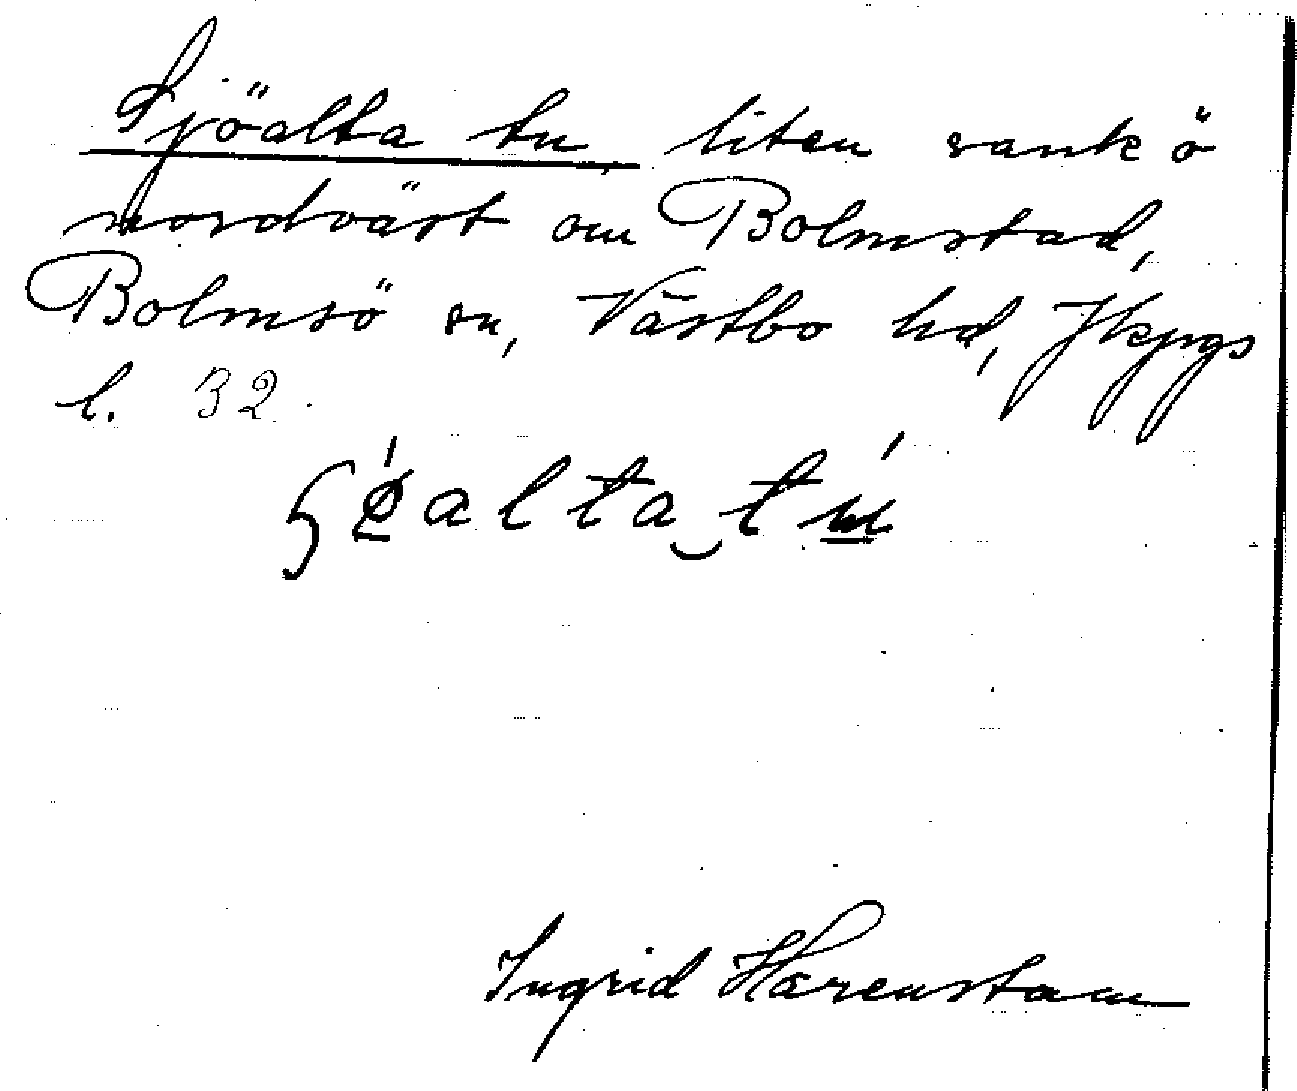 Sjöalta tu, liten sank ö
nordväst om Bolmstad,
Bolmsö sn, Västbo hd, Jkpgs
l. 32.
Ingrid Härenstam